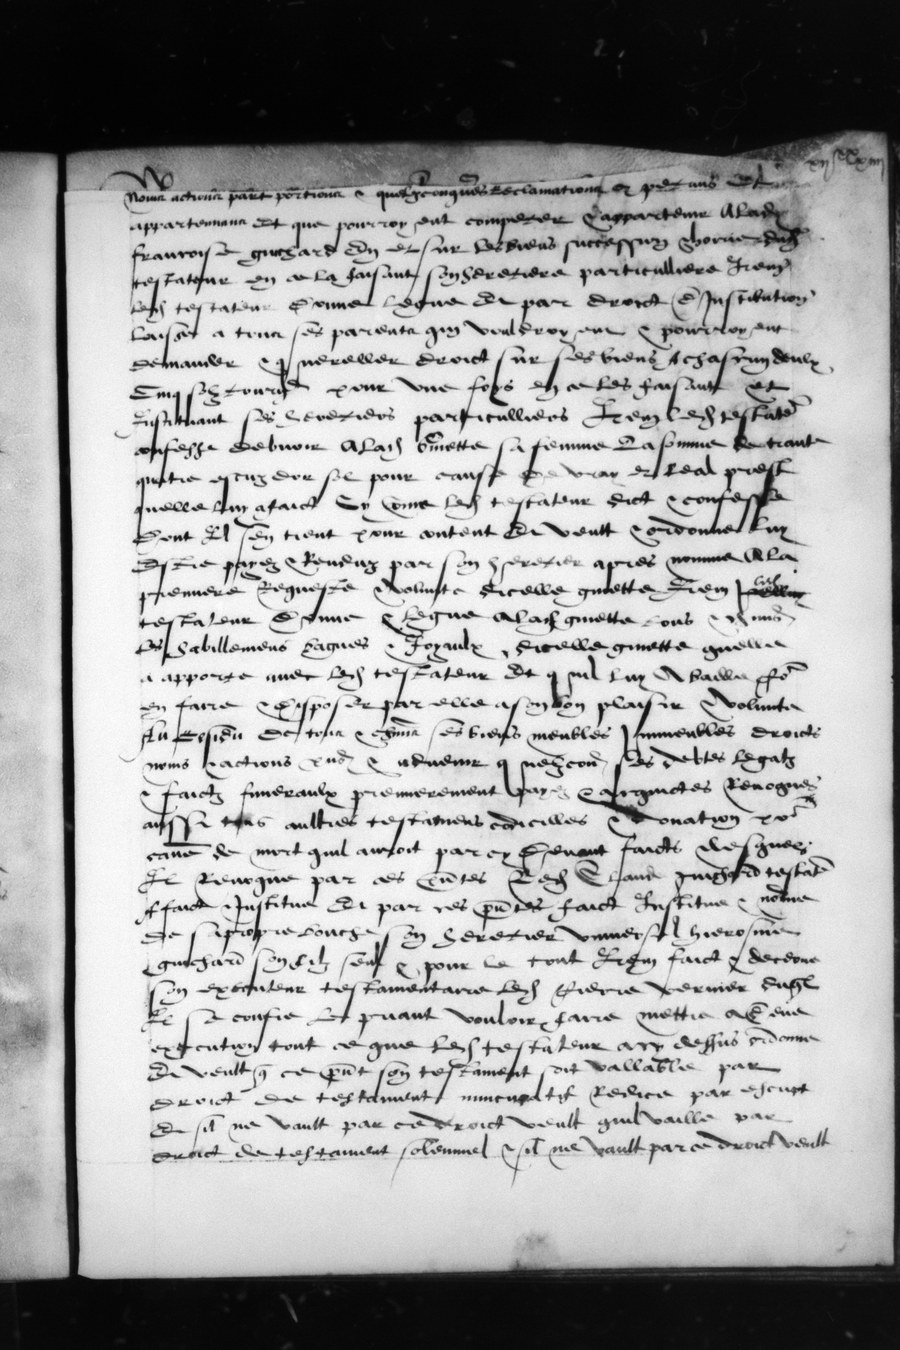 noms actions part portions & quelzconques reclamations et
appartenans et que pourroyent competer & appartenir a lad
francoise guichard en et sur les biens succession hoirie dud
testateur en ce la faisant son heretiere particulliere Item
led testateur donne legue et par droict d'Institution
laisse a tous ses parents qui vouldroyent & pourroyent
demander & quereller droict sur ses biens A chascun deulx
Cinq solz tourn pour une foys en ce les faisant et
Instituant ses heretiers particulliers Item led testateur
confesse debvoir A lad gmette sa femme La somme de trante
quatre escuz dor sol pour cause de vray et leal prest
quelle luy a faict Cy come led testateur dict & confesse
dont Il sen tient pour content Et veult & ordonne luy
estre payez & Renduz par son heretier apres nomme A la
premiere Requeste & volunte dicelle gmette Item led
testateur donne & legue a lad gmette tous &
ses habillemens bagues & Joyaulx dicelle gmette quelle
a apporte avec led testateur Et quil luy A baille
en faire & disposer par elle a son bon plaisir & volunte
Au Residu de tous & ses biens meubles Immeubles droicts
noms & actions & advenir ses debtes legatz
& fraictz funeraulx premierement payez & acquictes Revoques
aussi tous aultres testamens codicilles & donation
cause de mort quil auroit par cy devant faicts lesquels
Il Revoque par ces led Claude guichard testateur
A faict & Institue Et par ces faict Institue & nomme
de sa propre bouche son heretier universel hierosme
guichard son filz seul & pour le tout Item faict & decerne
son executeur testamentaire led Pierre vernier duql
Il se confie Le priant vouloir faire mettre a deue
execution tout ce que led testateur a cy dessus ordonne
Et veult q ce pnt son testament soit vallable par
droict de testament nuncupatif Redige par escript
Et sil ne vault par ce droict veult quil vaille par
droict de testament solennel & sil ne vault par ce droict veult